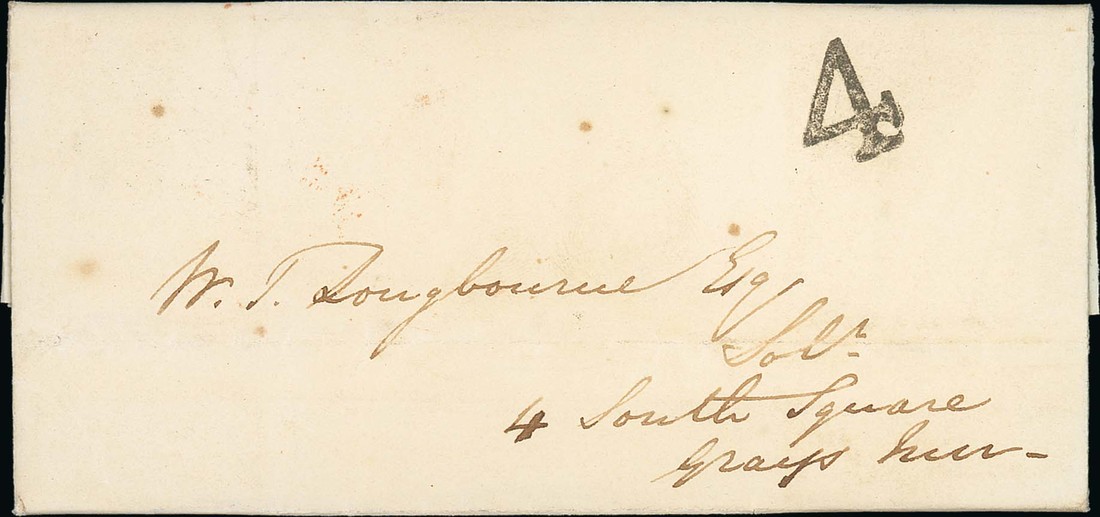 4d
W. T. Longbourne Esq
Solr.
4 South Square
Grays Inn -